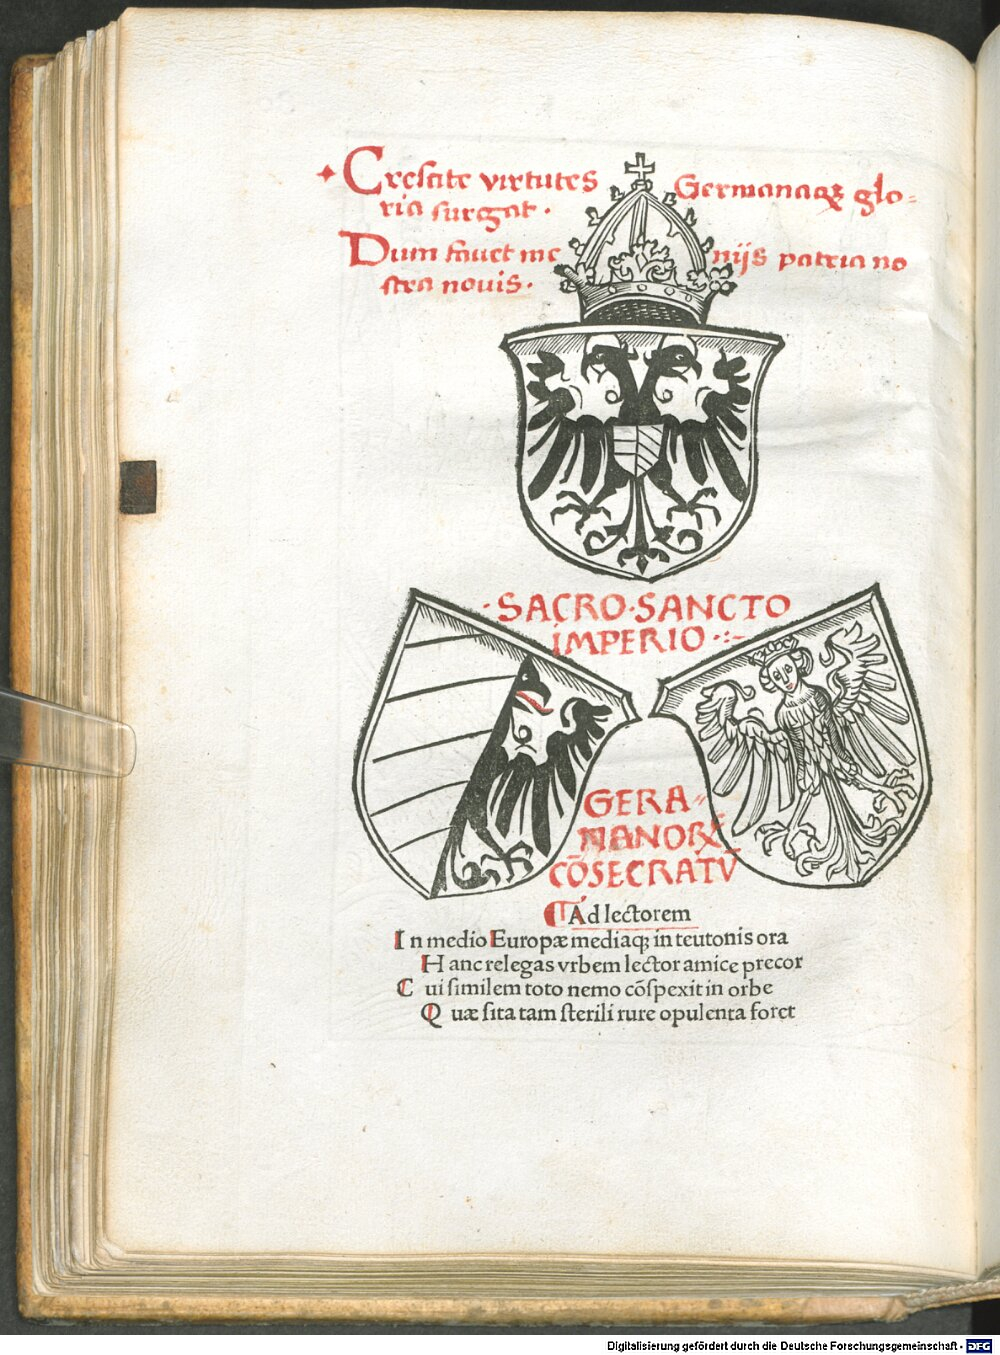 Crescite virtutes Germanaqꝫ glo-
ria surgat.
Dum fauet me nijs patria no
stra nouis.
·SACRO·SANCTO
IMPERIO·:~
GERA=
MANORꝜ
CŌSECRATV̄
¶Ad lectorem
In medio Europæ mediaqꝫ in teutonis ora
Hanc relegas vrbem lector amice precor
Cui similem toto nemo cōspexit in orbe
Quæ sita tam sterili rure opulenta foret
Digitalisierung gefördert durch die Deutsche Forschungsgemeinschaft - DFG